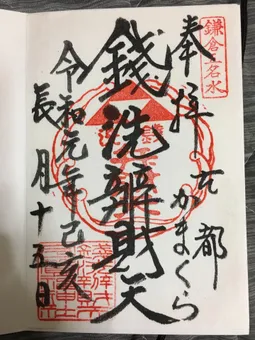 鎌倉五名水
奉拝
古都
かまくら
錢洗辨財天
令和元年己亥
長月十五日